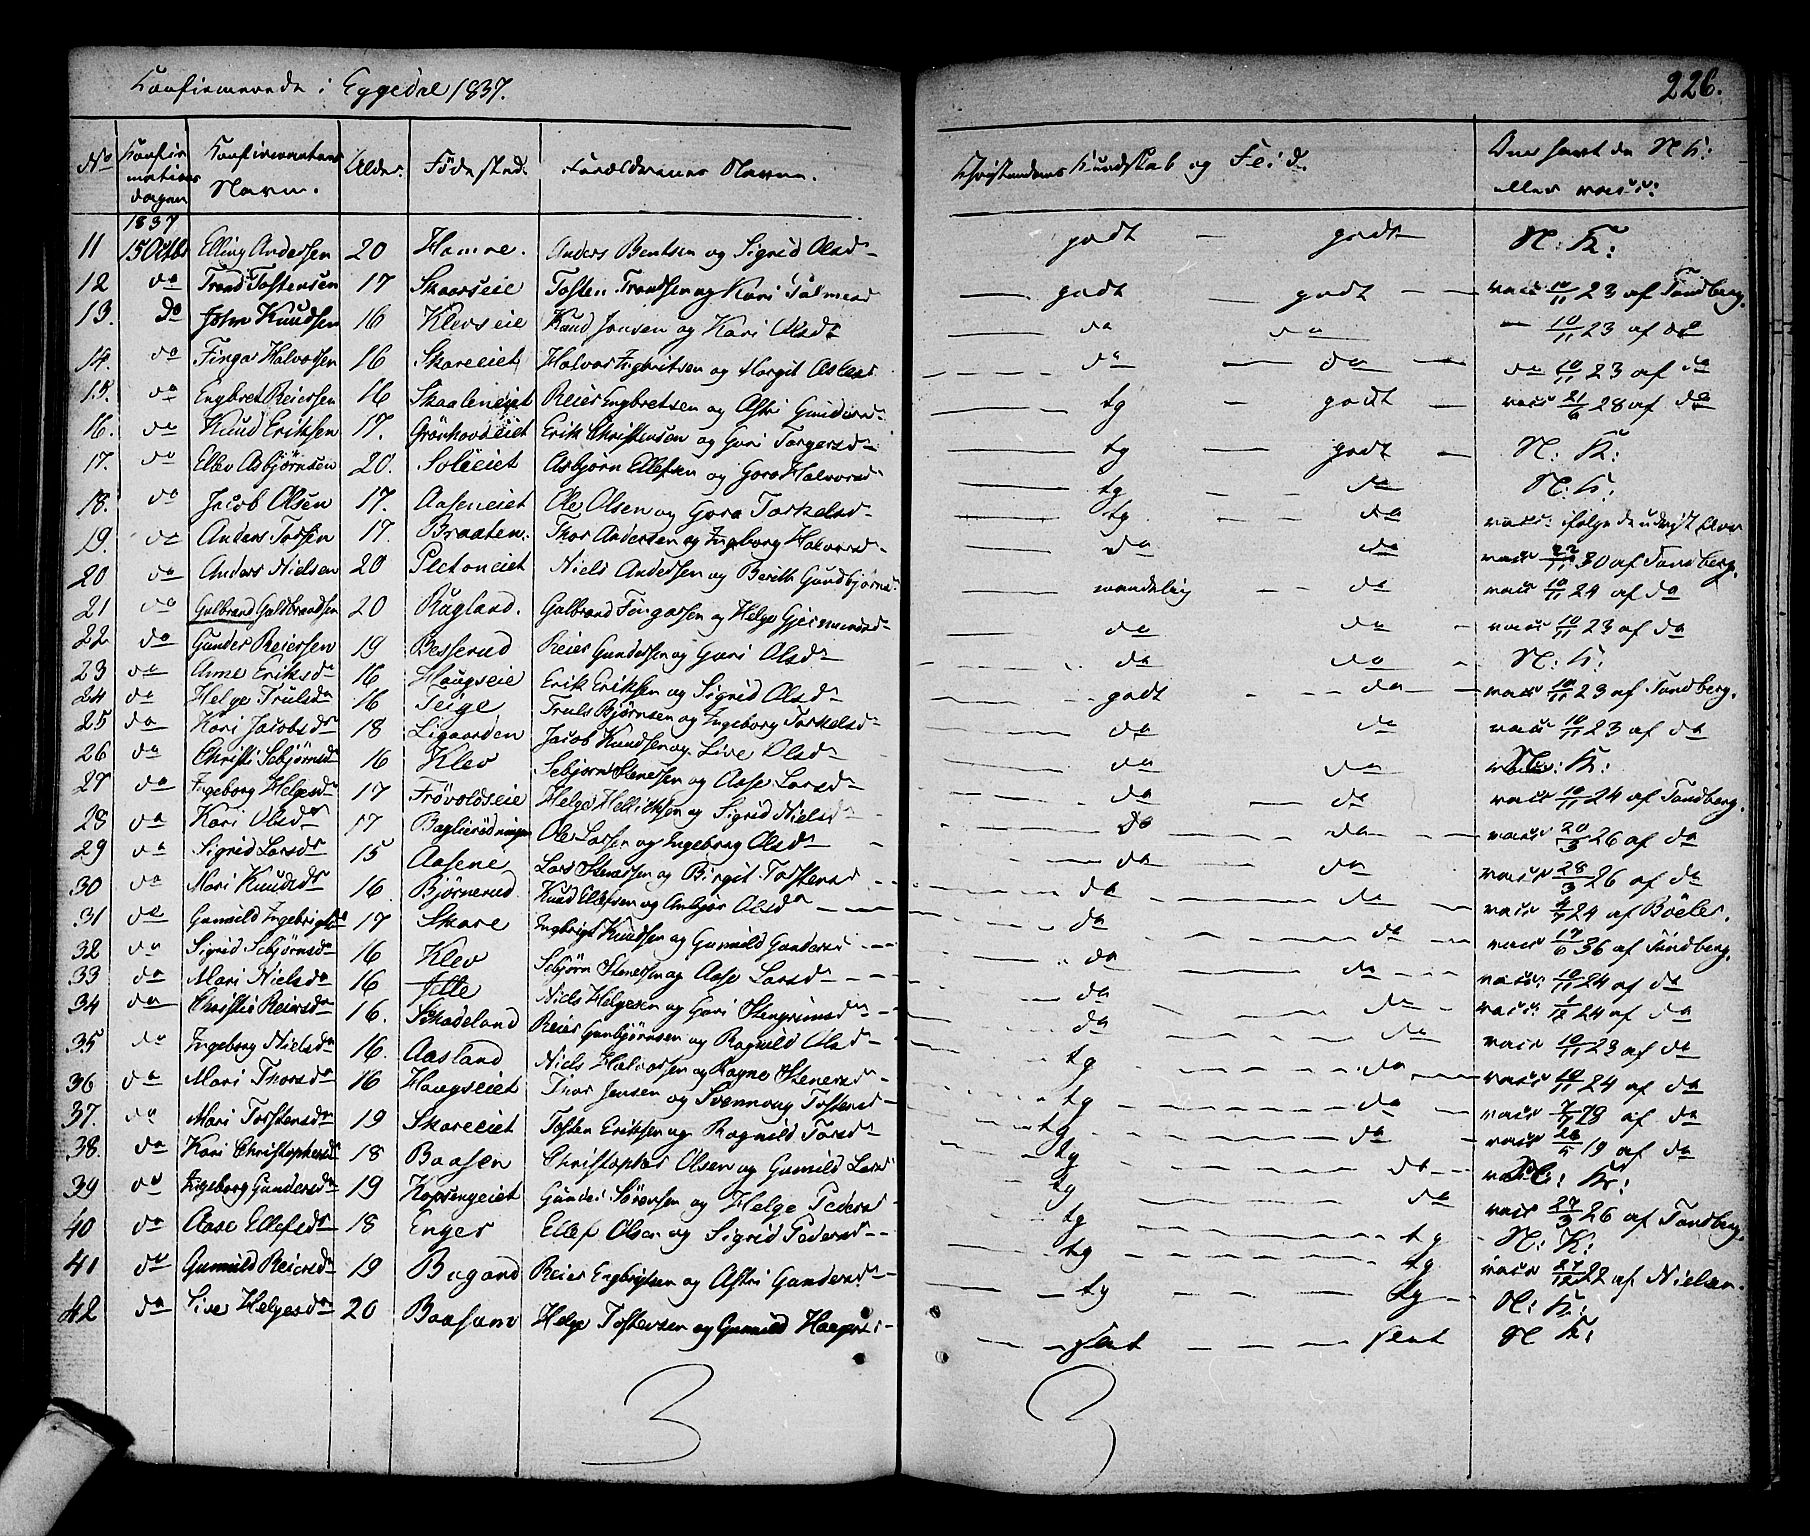 Confirmerede i Eggedal 1837. 226.
No Confirmations dagen Confirmantens Navn. Alder. Födested. Forældrenes Navn. Christendoms Kundskab og Flid. Om havt de N. K: eller vacc:
1837
11 15 Octbr Elling Andersen 20 Hamre. Anders Bentsen og Sigrid Olsdr godt godt N: K:
12 do Trond Tostensen 17 Skaarseie Tosten Trondsen og Kari godt godt vacc 10/11 23 af Tandberg.
13. do John Knudsen 16 Klevseie Knud Jonsen og Kari Olsdr do do 10/11 23 af do
14. do Fingar Halvorsen 16 Skareeiet Halvor Ingbritsen og Margit do do do 10/11 23 af do
15. do Engbret Reiersen 16 Skaaleneiet Reier Engbretsen og Astri Gundersd tg godt vacc 21/6 28 af do
16. do Knud Eriksen 17. Grönhovdeiet Erik Christensen og Guri Torgersdr tg godt N: K:
17. do Ellev Asbjörnsen 20. Soleeiet Asbjörn Ellefsen og Gora Halvorsd tg do N: K:
18. do Jacob Olsen 17. Aaseneiet Ole Olsen og Gora Torkelsdr tg do vacc: ifölge
19. do Anders Torsen 17. Braaten. Thor Andersen og Ingeborg Halvorsd do do vacc 22/11 30 af Tandberg.
20 do Anders Nielsen 20 Niels Andersen og Berith Gundbjörns maadelig do vacc 10/11 24 af do
21 do Gulbrand Guldbrandsen 20 Rugland. Gulbrand Fingarsen og Helge Gjermundsd do do vacc 10/11 23 af do
22 do Gunder Reiersen 19 Besserud Reier Gundersen og Guri Olsdr do do N: K:
23 do Anne Eriksdr 16 Haugseie Erik Eriksen og Sigrid Olsdr godt do vacc 10/11 23 af Tandberg.
24 do Helge Trulsdr 16 Teige Truls Björnsen og Ingeborg Torkelsdr do do vacc 10/11 23 af do
25 do Kari Jacobsdr 18 Ligaarden Jacob Knudsen og Live Olsdr do do N: K:
26 do Christi Sebjörnsdr 16 Klev Sebjörn Stenersen og Aase Larsdr do do vacc 10/11 24 af Tandberg.
27 do Ingeborg Helgesdr 17 Frövoldseie Helge Hellicksen og Sigrid Nielsd do do vacc 20/3 26 af do
28 do Kari Olsdr 17 Ole Larsen og Ingeborg Olsdr do do vacc 28/3 26 af do
29 do Sigrid Larsdr 15 Aasene Lars Stenersen og Birgit Torstensd do do vacc 24 af Böeler.
30 do Mari Knudsdr 16 Björnerud Knud Ellefsen og Anbjör Olsdr do do vacc 17/6 36 af Tandberg.
31 do Gunnild Ingebrigtsdr 17 Skare Ingbrigt Knudsen og Gunnild Gundersd do do vacc 10/11 24 af do
32 do Sigrid Sebjörnsdr 16 Klev Sebjörn Stenersen og Aase Larsdr do do vacc 24 af do
33 do Mari Nielsdr 16 Niels Helgesen og Guri Stengrimsdr do do vacc 10/11 23 af do
34 do Christie Reiersdr 16. Skadeland Reier Gunbjörnsen og Ragnild Olsdr do do vacc 10/11 24 af do
35 do Ingeborg Nielsdr 16. Aasland Niels Halvorsen og Ragne Stenersdr tg do vacc 7/11 28 af do
36 do Mari Thorsdr 16 Haugseiet Thor Jensen og Svennoug Tostensd tg do vacc 26/5 19 af do
37. do Mari Torstensdr 19 Skareeiet Tosten Eriksen og Ragnild Torsdr tg do N: K:
38. do Kari Christophersdr 18 Baasen Christopher Olsen og Gunnild Larsd tg do vacc 27/3 26 af Tandberg.
39 do Ingeborg Gundersdr 19 Kopsengeiet Gunder Sörensen og Helge Pedersd tg do N: K:
40 do Aase Ellefsdr 18 Enger Ellef Olsen og Sigrid Pedersd tg tg vacc 27/12 22 af Nielsen.
41 do Gunnild Reiersdr 19 Bugaard Reier Engbrigtsen og Astri Gundersd tg tg N: K:
42 do Live Helgesdr 20 Baasum Helge Tostensen og Gunnild slet slet N K:
3 3